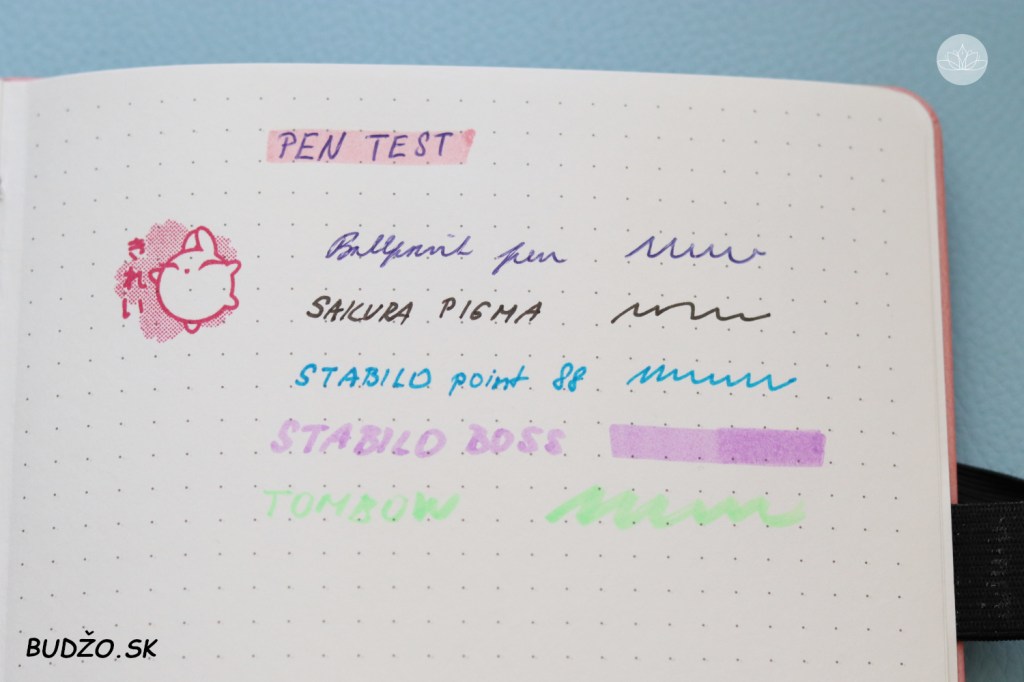 PEN TEST
きれい
Ballpoint pen
SAKURA PIGMA
STABILO point 88
STABILO BOSS
TOMBOW
BUDŽO.SK